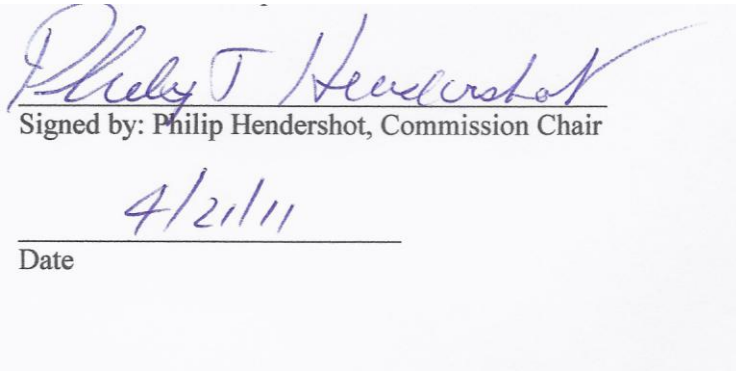 Philip T Hendershot
Signed by: Philip Hendershot, Commission Chair
4/21/11
Date